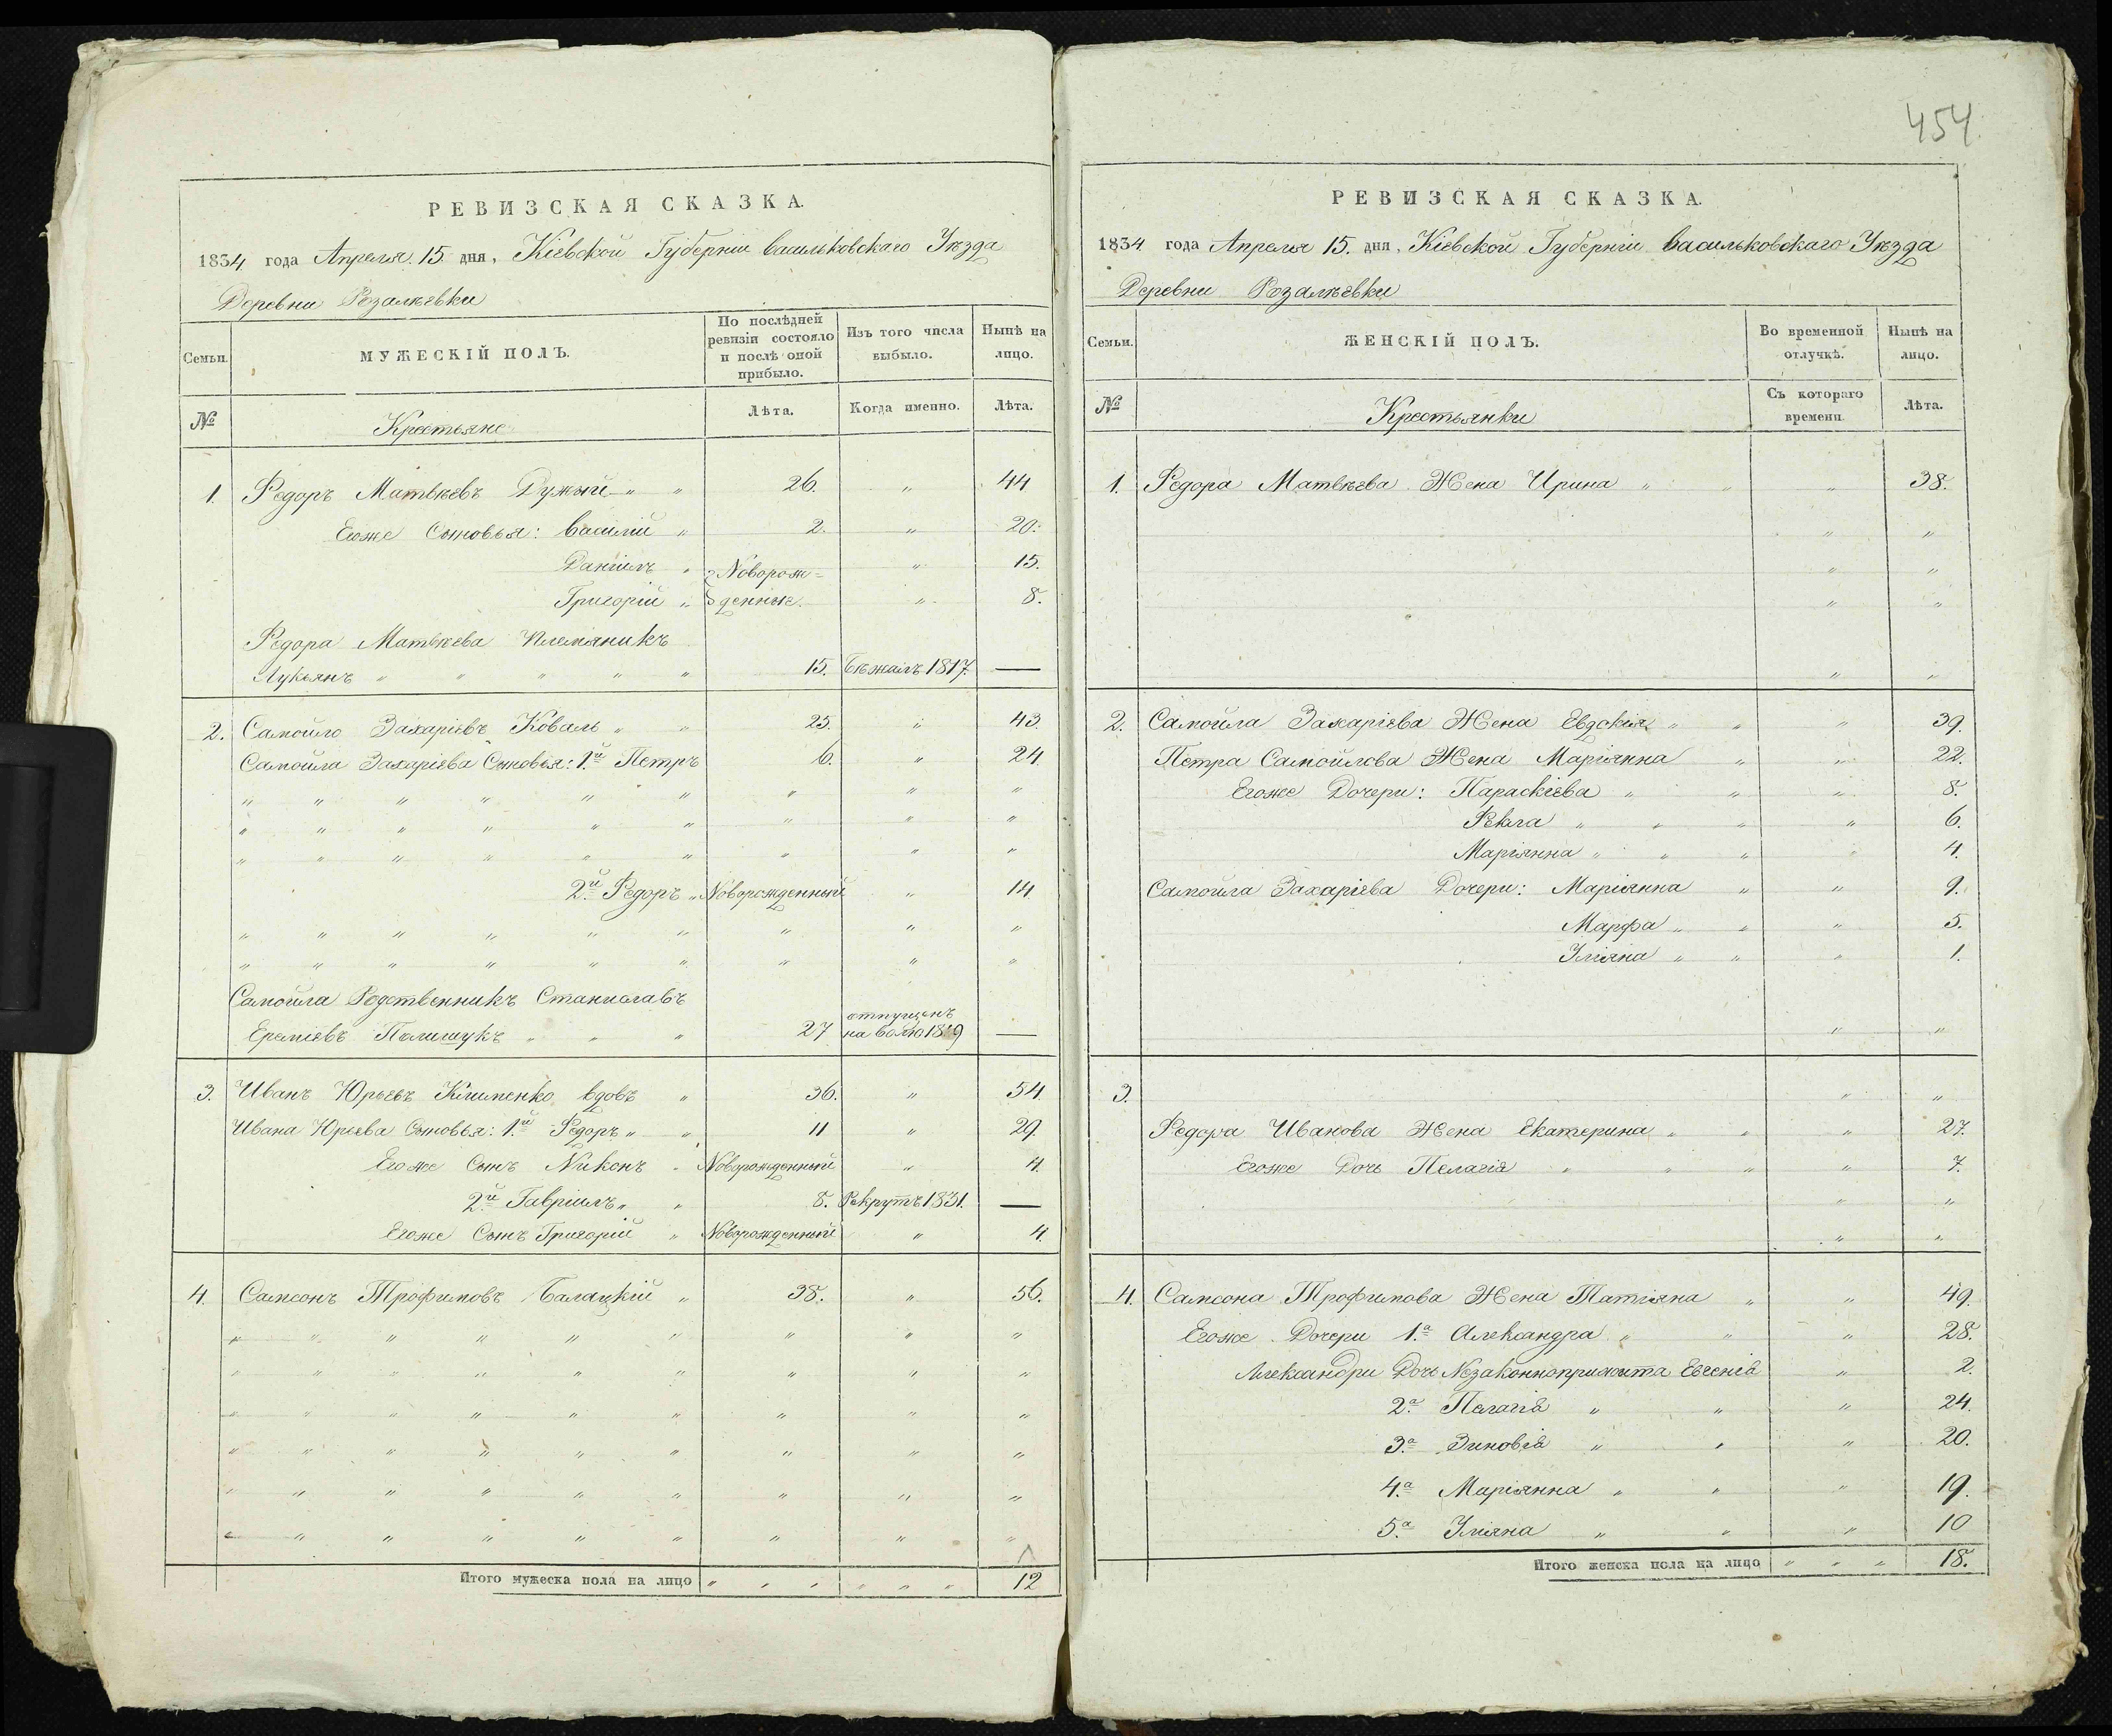 454.
РЕВИЗСКАЯ СКАЗКА.
1834 года Апреля 15 дня, Кіевской Губерніи Васильковскаго Уѣзда
Деревни Розалѣевки
Семьи.
МУЖЕСКІЙ ПОЛЪ.
По послѣдней ревизіи состояло и послѣ оной прибыло.
Изъ того числа выбыло.
Нынѣ на лицо.
№
Крестьяне
Лѣта.
Когда именно.
Лѣта.
1. Ѳедоръ Матвѣевъ Дужый " " 26. " 44
Егоже Сыновья: Василій " 2. " 20.
Даніилъ " Новорож= " 15.
Григорій " денные. " 8.
Ѳедора Матвѣева Племяникъ
Лукьянъ " " " " " 15. бѣжалъ 1817. —
2. Самойло Захаріевъ Коваль " " 25. " 43.
Самойла Захаріева Сыновья: 1.й Петръ 6. " 24.
" " " " " " " " "
" " " " " " " " "
" " " " " " " " "
2.й Ѳедоръ " Новорожденный " 14.
" " " " " " " " "
" " " " " " " " "
Самойла Родственникъ Станиславъ
Ереміевъ Полищукъ " " " 27 отпущенъ на волю 1819 —
3. Иванъ Юрьевъ Клименко вдовъ " 36. " 54
Ивана Юрьева Сыновья: 1.й Ѳедоръ " " 11 " 29.
Егоже Сынъ Никонъ " Новорожденный " 4.
2.й Гавріилъ " " 8. Рекрутъ 1831. —
Егоже Сынъ Григорій " Новорожденный " 4.
4. Самсонъ Трофимовъ Балацкій " 38. " 56.
" " " " " " " " "
" " " " " " " " "
" " " " " " " " "
" " " " " " " " "
" " " " " " " " "
" " " " " " " " "
Итого мужеска пола на лицо " " " " " " 12
РЕВИЗСКАЯ СКАЗКА.
1834 года Апреля 15. дня, Кіевской Губерніи Васильковскаго Уѣзда
Деревни Розалѣевки
Семьи.
ЖЕНСКІЙ ПОЛЪ.
Во временной отлучкѣ.
Нынѣ на лицо.
№
Крестьянки
Съ котораго времени.
Лѣта.
1. Ѳедора Матвѣева Жена Ирина " " " 38.
" "
" "
" "
" "
2. Самойла Захаріева Жена Евдокія " " " 39.
Петра Самойлова Жена Маріянна " " 22.
Егоже Дочери: Параскіева " " " 8.
Ѳекла " " " " 6.
Маріянна " " " " 4.
Самойла Захаріева Дочери: Маріянна " " 9.
Марфа " " " 5.
Уліяна " " " 1.
" "
3. " "
Ѳедора Иванова Жена Екатерина " " " 27.
Егоже Дочь Пелагія " " " " 7.
" "
" "
4. Самсона Трофимова Жена Татіяна " " 49.
Егоже Дочери 1.а Александра " " " 28.
Александри Дочь Незаконноприжита Евгенія " 2.
2.а Пелагія " " " 24.
3.а Зиновія " " " 20.
4.а Маріянна " " " 19.
5.а Уліяна " " " 10
Итого женска пола на лицо " " " 18.